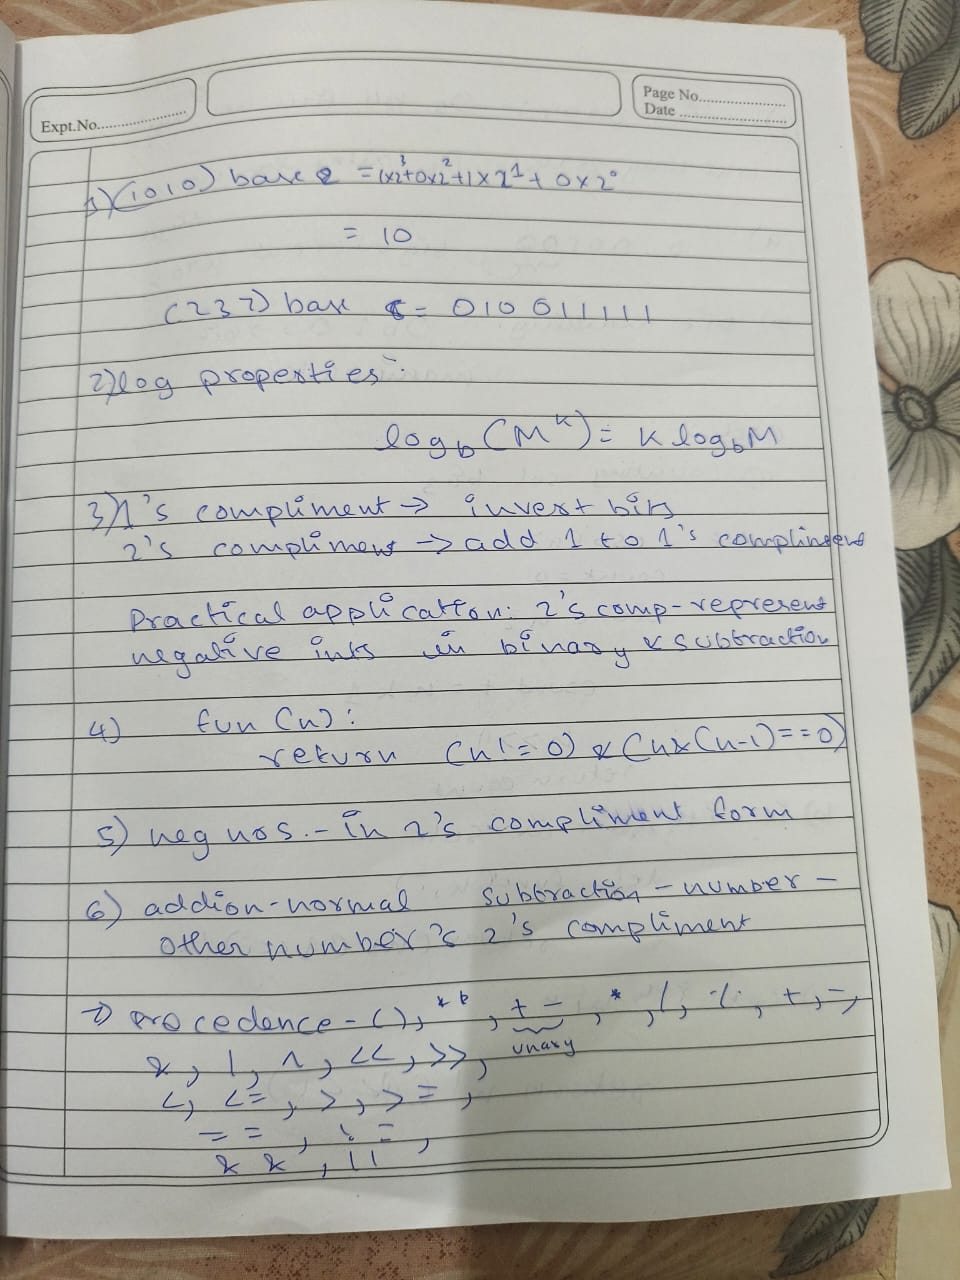 Expt.No.
Page No.
Date
1) (1010) base 2 = 1x2³+0x2²+1x2¹+0x2⁰
= 10
(237) base 8 = 010 011111
2) log properties:
log_b (M^k) = k log_b M
3) 1's compliment → invert bits
2's compliment → add 1 to 1's compliment
Practical application: 2's comp-represent
negative ints in binary & subtraction
4) fun (n):
return (n != 0) & (n & (n-1) == 0)
5) neg nos. - in 2's compliment form
6) addion-normal subtraction - number -
other number's 2's compliment
7) procedence - (), **, + -, *, /, %, +, -,
unary
&, |, ^, <<, >>,
<, <=, >, >=,
==, !=,
&&, ||